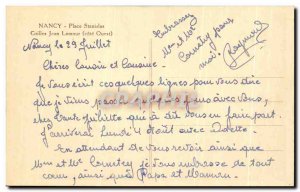 NANCY - Place Stanislas
Grilles Jean Lamour (côté Ouest)
Nancy le 29 Juillet
Embrassez
Mr et Mme
Cornetey pour
moi.
Raymond
Chères cousin et Cousine
Je vous écris ces quelques lignes pour vous dire
que je vous avec vous,
chez tante Juliette que a dit vous en faire part.
J'arriverai Lundi 4 Août avec
En attendant de vous revoir ainsi que
Mme et Mr Cornetey je vous embrasse de tout
cœur, ainsi que Papa et Maman.